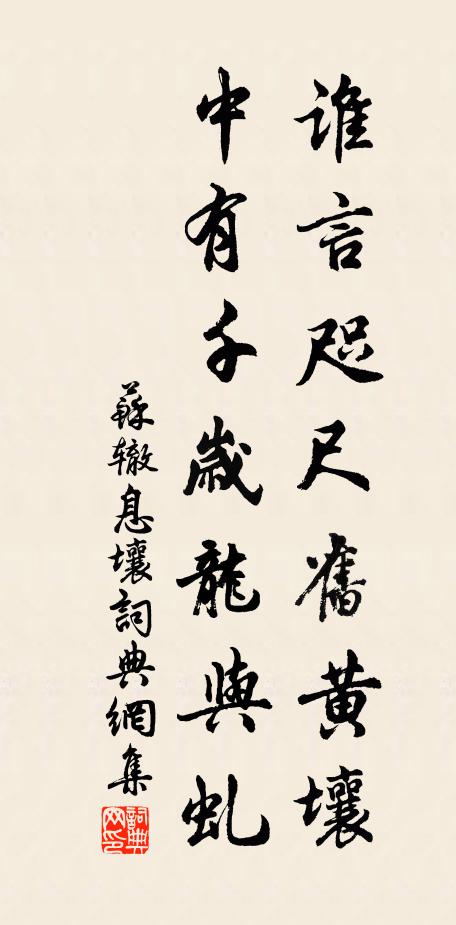 誰言咫尺舊黃壤
中有千歲龍與虬
蘇轍息壤詞典網集
詞典網印